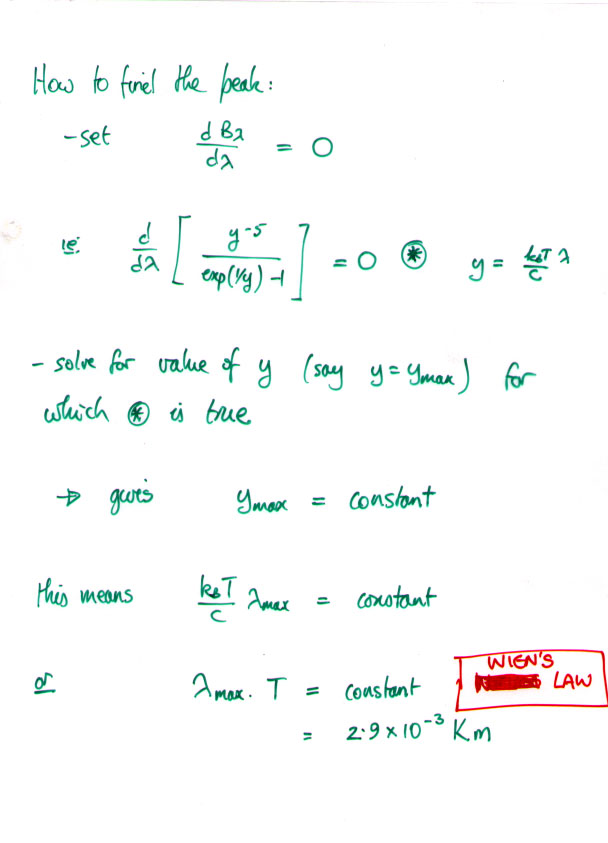 How to find the peak:
- set dBλ/dλ = 0
ie: d/dλ [ y^-5 / (exp(1/y) - 1) ] = 0 ⊛ y = kBT/C λ
- solve for value of y (say y = ymax) for
which ⊛ is true
→ gives ymax = constant
this means kBT/C λmax = constant
or λmax. T = constant WIEN'S LAW
= 2.9 × 10^-3 Km